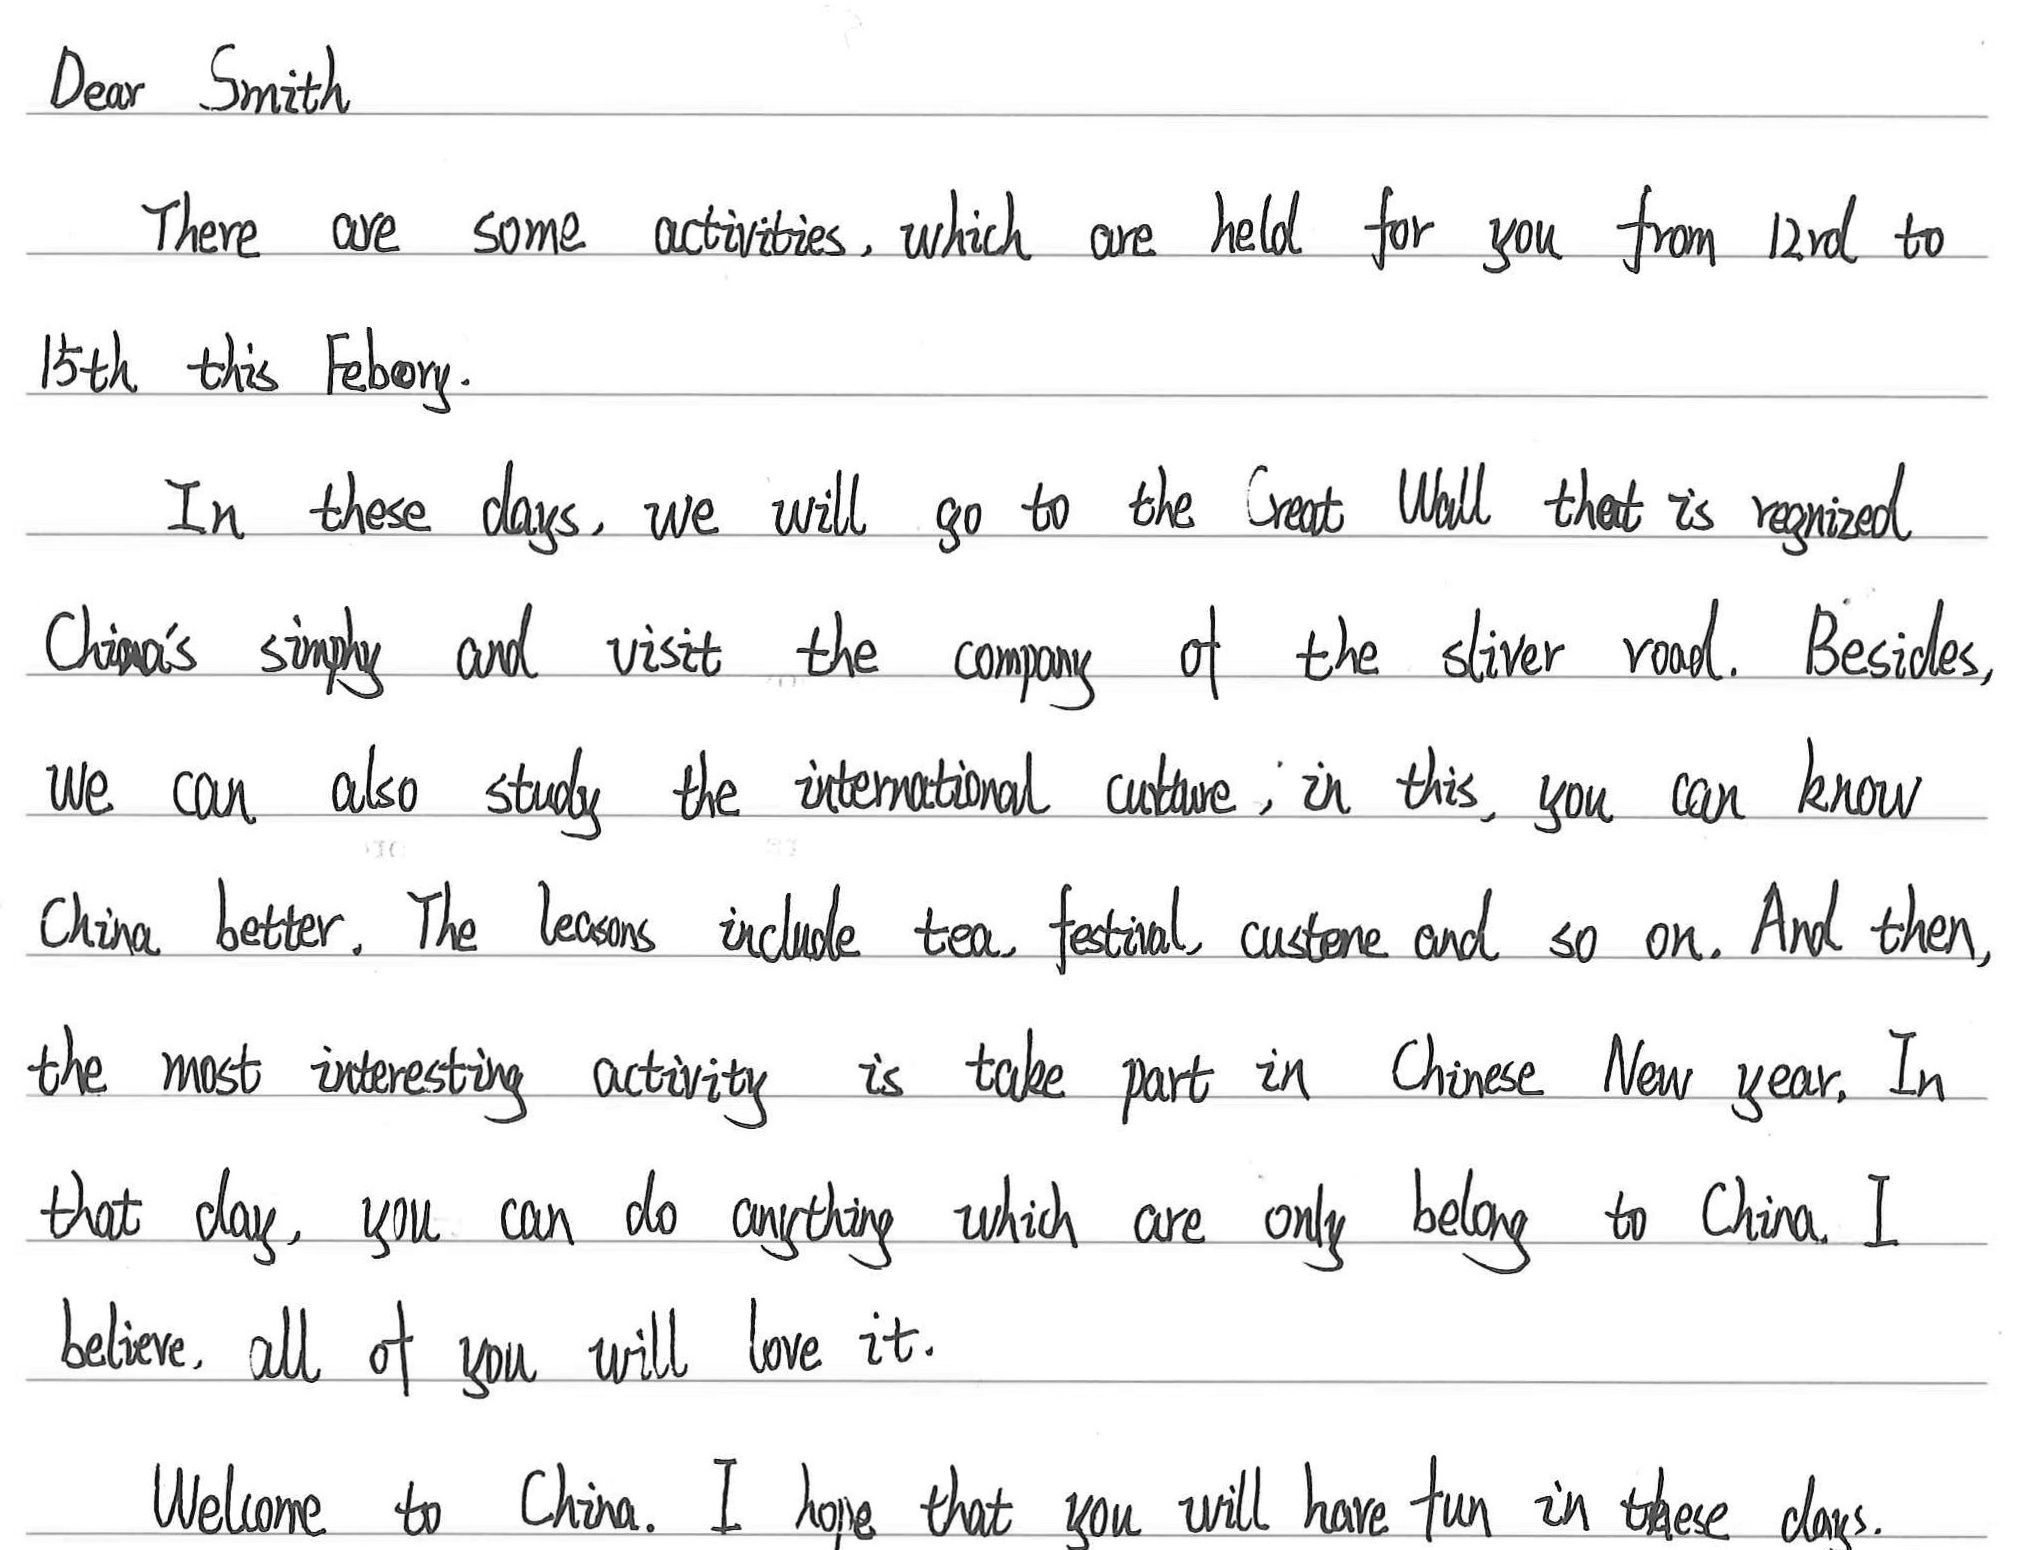 Dear Smith
There are some activities, which are held for you from 12rd to
15th this Febory.
In these days, we will go to the Great Wall that is regnized
China's simphy and visit the company of the sliver road. Besides,
we can also study the international culture; in this, you can know
China better. The leasons include tea, festival, custone and so on. And then,
the most interesting activity is take part in Chinese New year. In
that day, you can do anything which are only belong to China. I
believe, all of you will love it.
Welcome to China. I hope that you will have fun in these days.